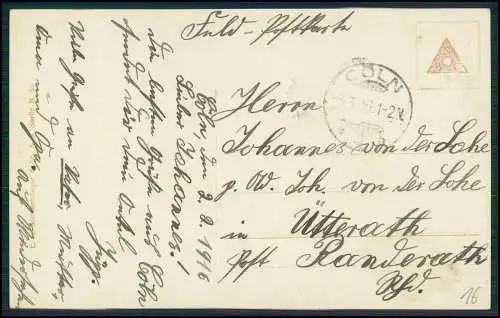 Feld-Postkarte
CÖLN
5.3.16.1-2N.
Herrn
Johannes von der Lohe
p. Ad. Joh. von der Lohe
in Ütterath
Post Randerath
Rhd.
16
Cöln, den 2.3.1916
Lieber Johannes!
Die besten Grüße aus Cöln
sendet dir dein Onkel
Jupp.
Viele Grüße an Vater, Mutter,
Oma und Opa.
Auf Wiedersehn